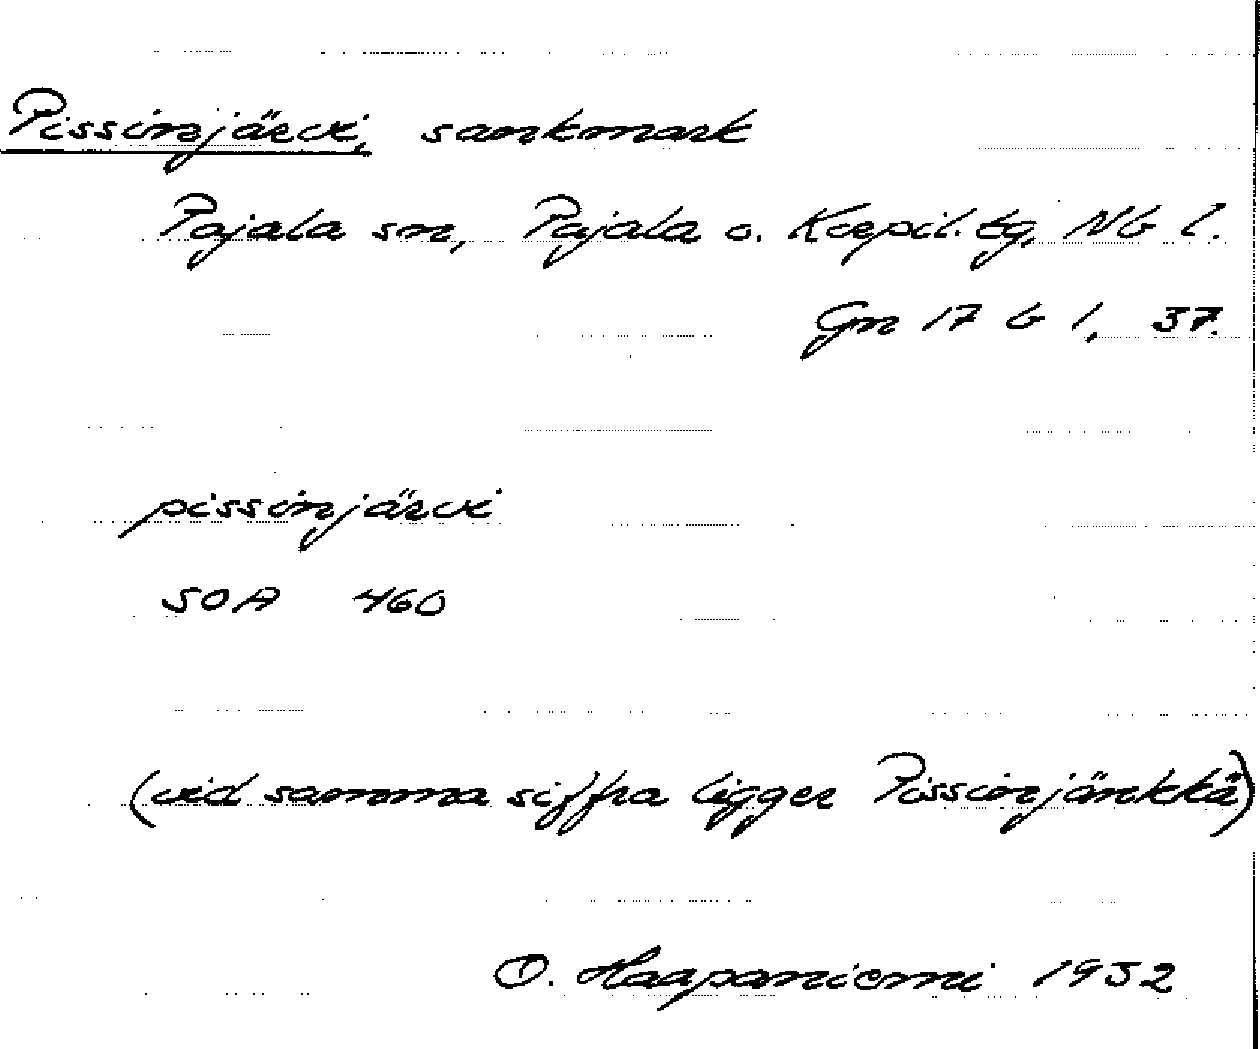 Pissinjärvi, sankmark
Pajala sn, Pajala o. Korpil. tg, Nb l.
Gn 17 b 1, 37.
pissinjärvi
SOA 460
(vid samma siffra ligger Pissinjänkkä)
O. Haapaniemi 1952